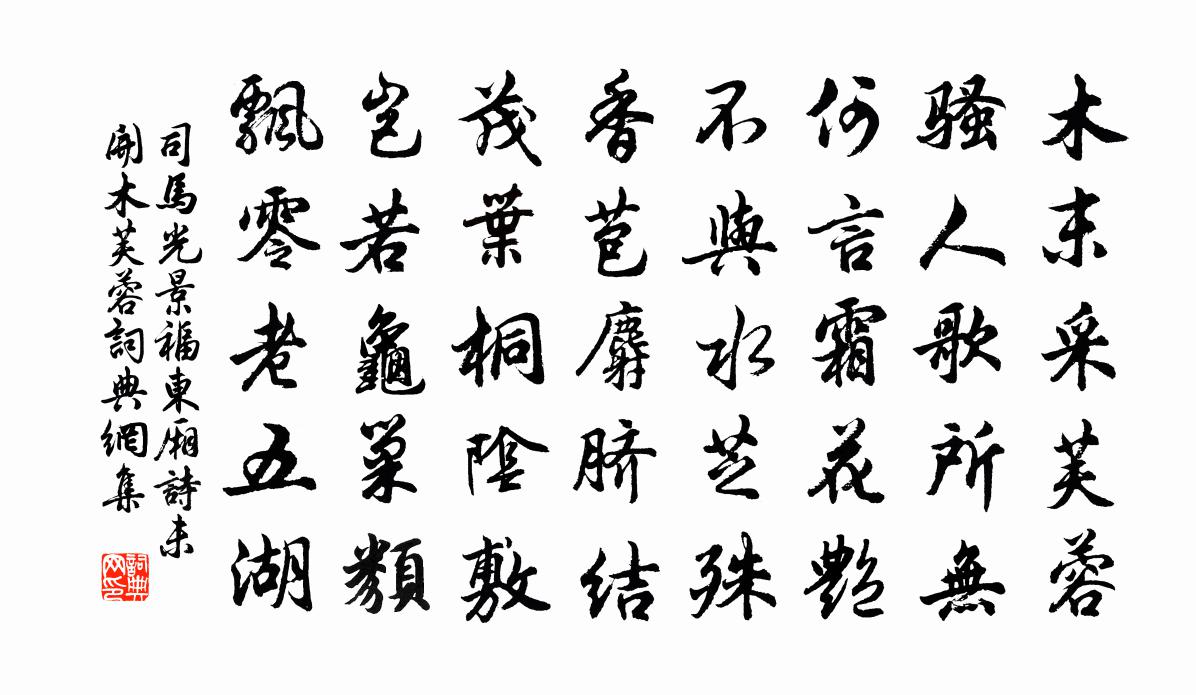 木末采芙蓉
騷人歌所無
何言霜花艷
不與水芝殊
香苞麝臍結
茂葉桐陰敷
豈若龜巢類
飄零老五湖
司馬光景福東廂詩未
開木芙蓉詞典網集
詞典網印